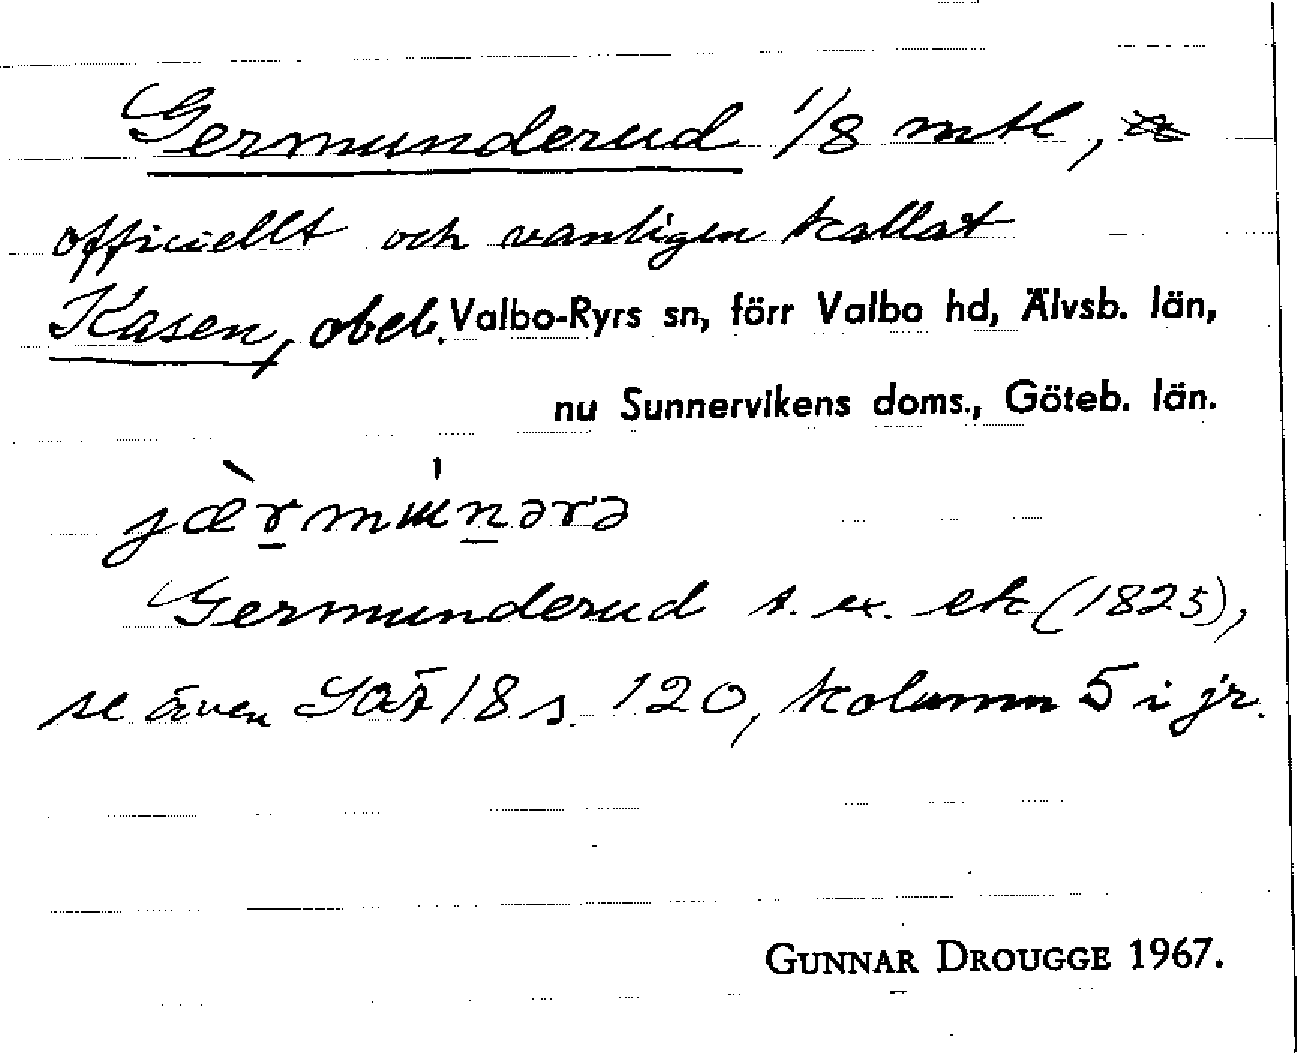 Germunderud 1/8 mtl,
officiellt och vanligen kallat
Kasen, obeb. Valbo-Ryrs sn, förr Valbo hd, Älvsb. län,
nu Sunnervikens doms., Göteb. län.
Germunderud t. ex. ek (1825),
se även SOÄ 18 s. 120, kolumn 5 i jr.
GUNNAR DROUGGE 1967.